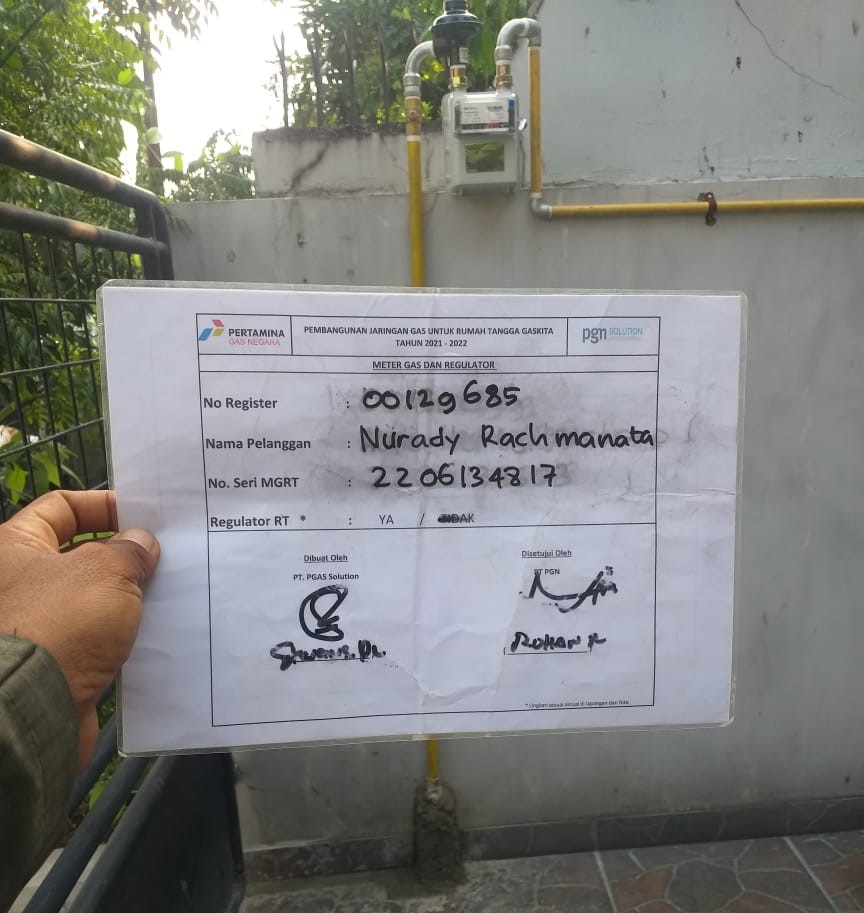 PERTAMINA
GAS NEGARA
PEMBANGUNAN JARINGAN GAS UNTUK RUMAH TANGGA GASKITA
TAHUN 2021 - 2022
pgn SOLUTION
METER GAS DAN REGULATOR
No Register : 00129685
Nama Pelanggan : Nurady Rachmanata
No. Seri MGRT : 2206134817
Regulator RT * : YA / TIDAK
Dibuat Oleh
PT. PGAS Solution
Disetujui Oleh
PT PGN
ROHAN
* Lingkari sesuai aktual di lapangan dan foto